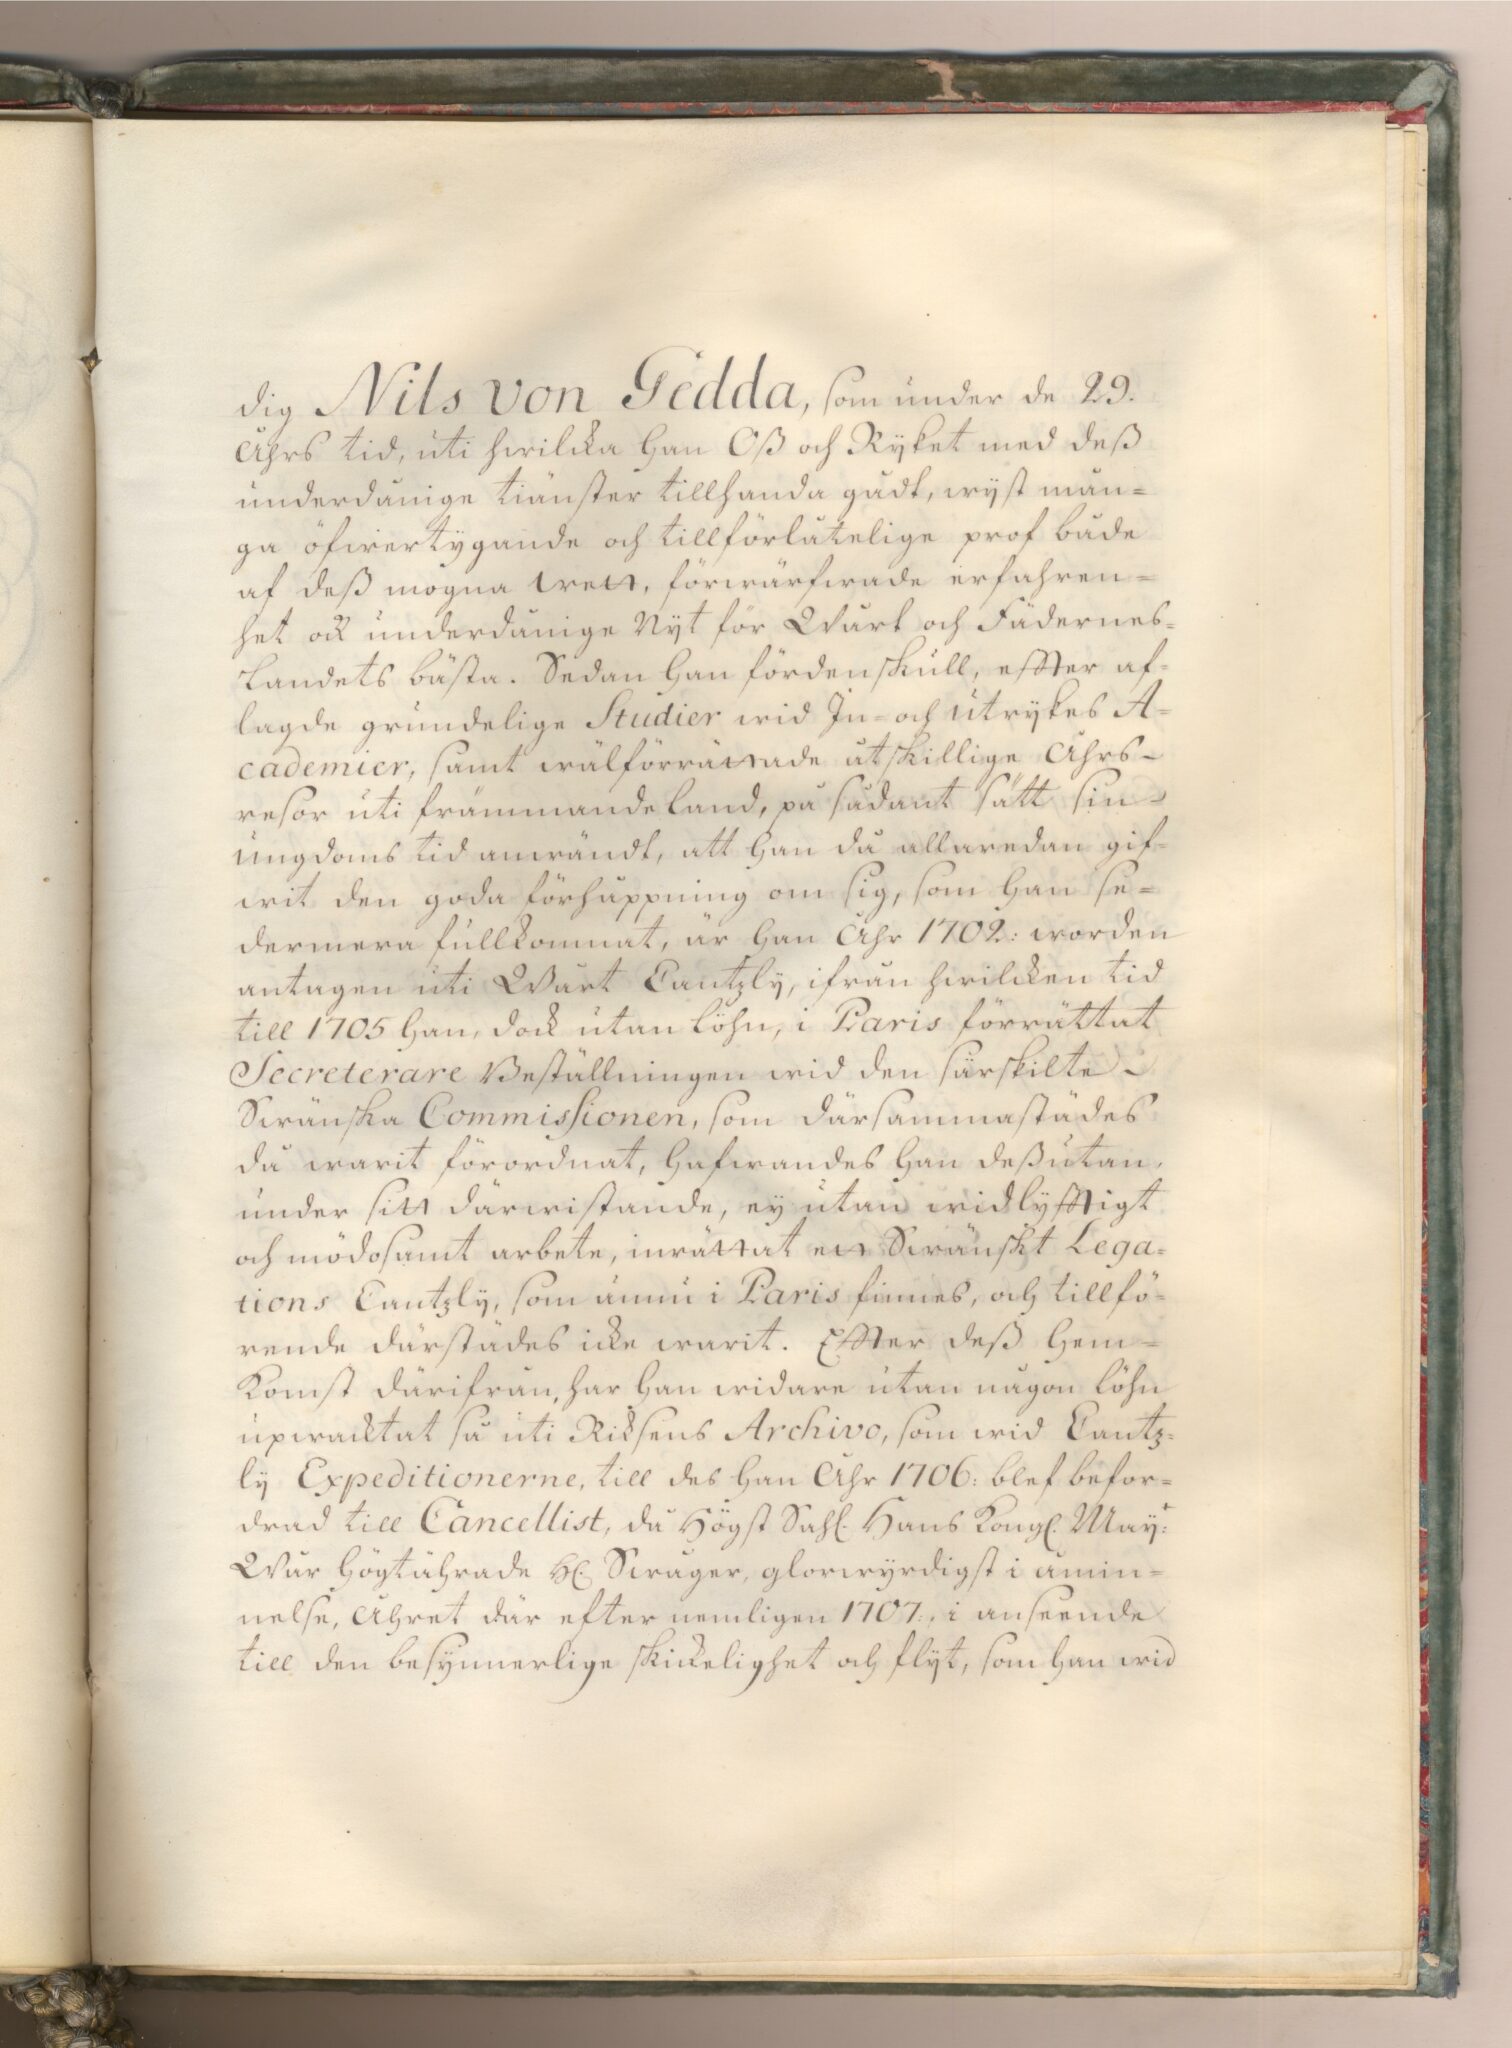 dig Nils von Gedda, som under de 29.
Åhrs tid, uti hwilcka han Oß och Ryket med deß
underdånige tiänster tillhanda gådt, wyst mån=
ga öfwertygande och tillförlåtelige prof både
af deß mogna wett, förwärfwade erfahren=
het ock underdånige Nyt för Wårt och Fädernes=
Landets bästa. Sedan han fördenskull, effter af=
lagde grundelige Studier wid In= och utrykes A=
cademier, samt wälförrättade åtskillige Åhrs=
resor uti främmande land, på sådant sätt sin
ungdoms tid anwändt, att han då allaredan gif=
wit den goda förhåppning om sig, som han se=
dermera fullkomnat, är han Åhr 1702: worden
antagen uti Wårt Cantzly, ifrån hwilcken tid
till 1705 han, dock utan löhn, i Paris förrättat
Secreterare Beställningen wid den särskilte
Swänska Commissionen, som därsammastädes
då warit förordnat, hafwandes han deßutan,
under sitt därwistande, ey utan widlyfftigt
och mödosamt arbete, inrättat ett Swänskt Lega=
tions Cantzly, som ännu i Paris finnes, och tillfö=
rende därstädes icke warit. Effter deß hem=
Komst därifrån, har han widare utan någon löhn
upwacktat så uti Riksens Archivo, som wid Cantz=
ly Expeditionerne, till des han Åhr 1706: blef befor=
drad till Cancellist, då Högst Sahl. Hans Kongl. May:t
Wår högtährade H. Swåger, glorwyrdigst i åmin=
nelse, Åhret där efter nemligen 1707:, i anseende
till den besynnerlige skickelighet och flyt, som han wid